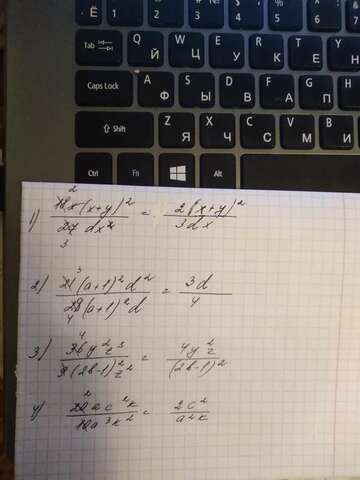 Ё 2 # 3 № 4 $ 5 % 6
Tab Q Й W Ц E У R К T Е Y Н
Caps Lock A Ф S Ы D В F А G П
Shift Z Я X Ч C С V М B И
Ctrl Fn Alt
1) 18x(x+y)² / 27dx² = 2(x+y)² / 3dx
2 3
2) 21(a+1)²d² / 28(a+1)²d = 3d / 4
3 4
3) 36y²z³ / 9(2b-1)²z² = 4y²z / (2b-1)²
4
4) 20ac²k / 10a³k² = 2c² / a²k
2